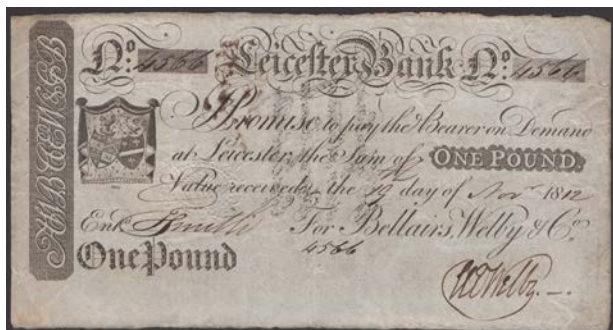 No. 4566 Leicester Bank No. 4566
I Promise to pay the Bearer on Demand
at Leicester, the Sum of ONE POUND.
Value received the 19 day of Novr. 1812
Entd. For Bellairs, Welby & Co.
4566
One Pound
Welby